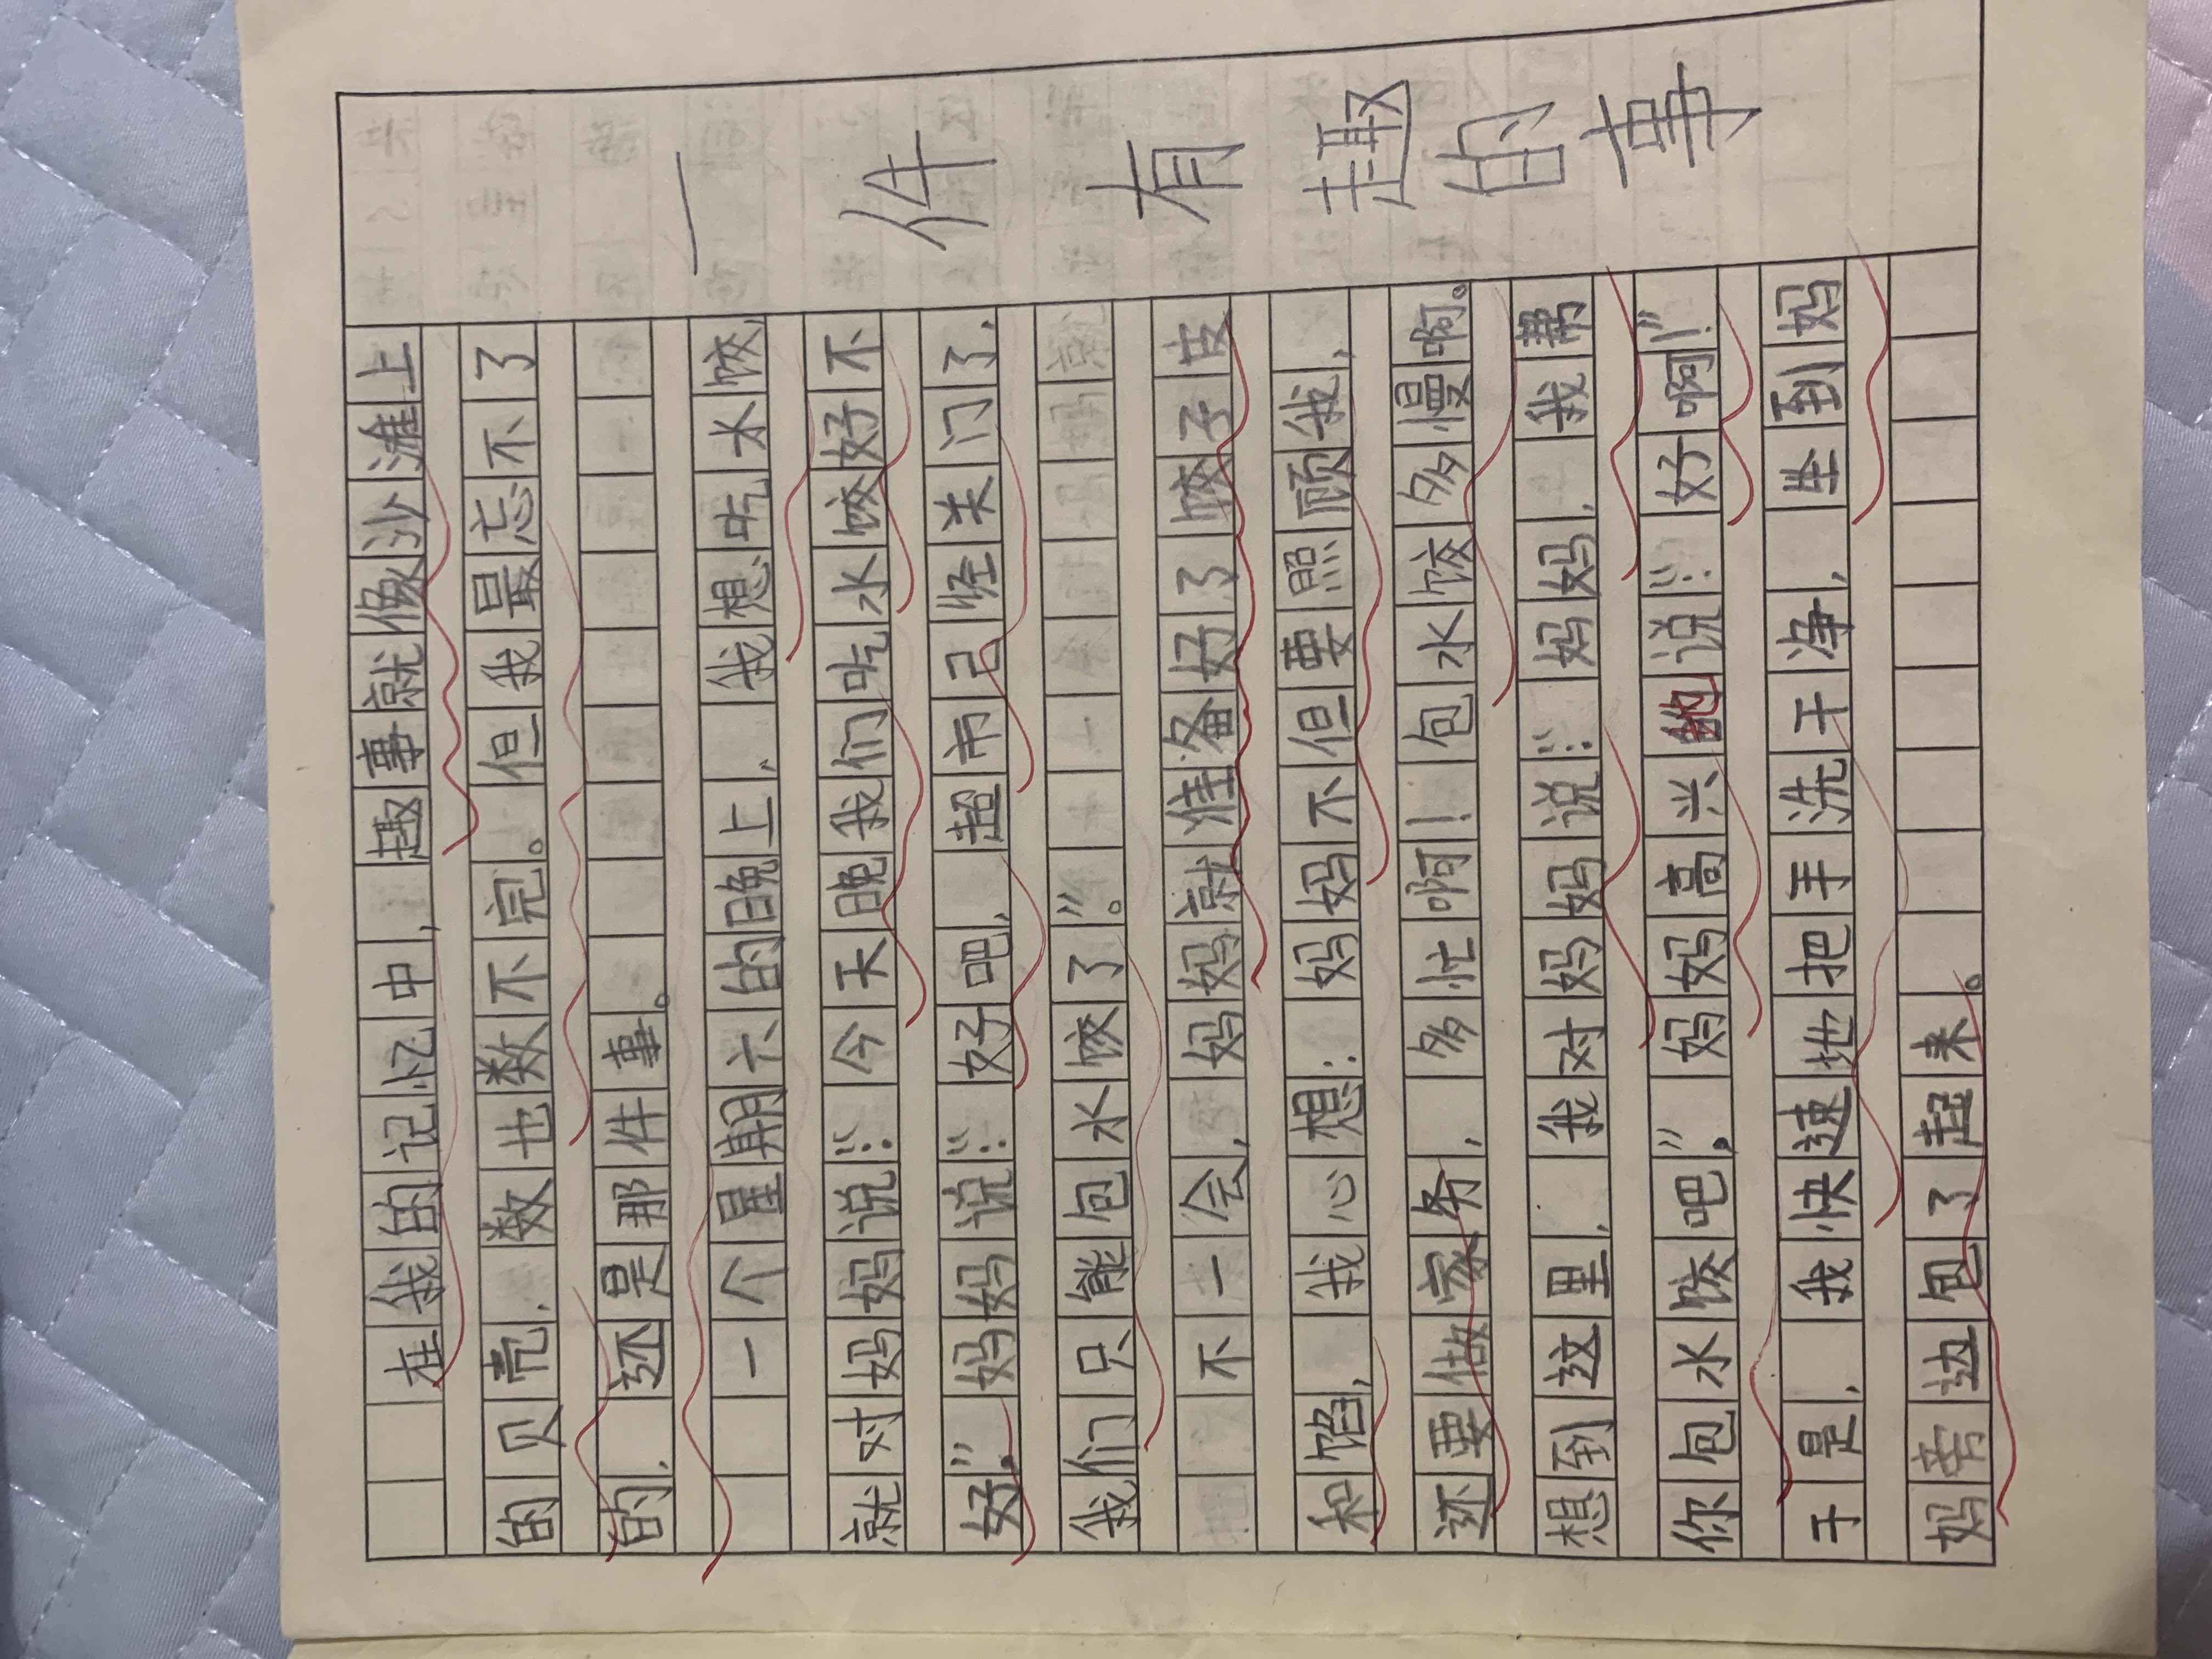 一件有趣的事
在我的记忆中，趣事就像沙滩上
的贝壳，数也数不完。但我最忘不了
的，还是那件事。
一个星期六的晚上，我想吃水饺，
就对妈妈说：“今天晚我们吃水饺好不
好。”妈妈说：“好吧，超市已经关门了，
我们只能包水饺了”。
不一会，妈妈就准备好了饺子皮
和馅，我心想：妈妈不但要照顾我，
还要做家务，多忙啊！包水饺多慢啊。
想到这里，我对妈妈说：“妈妈，我帮
你包水饺吧。”妈妈高兴地说：“好啊！”
于是，我快速地把手洗干净，坐到妈
妈旁边包了起来。